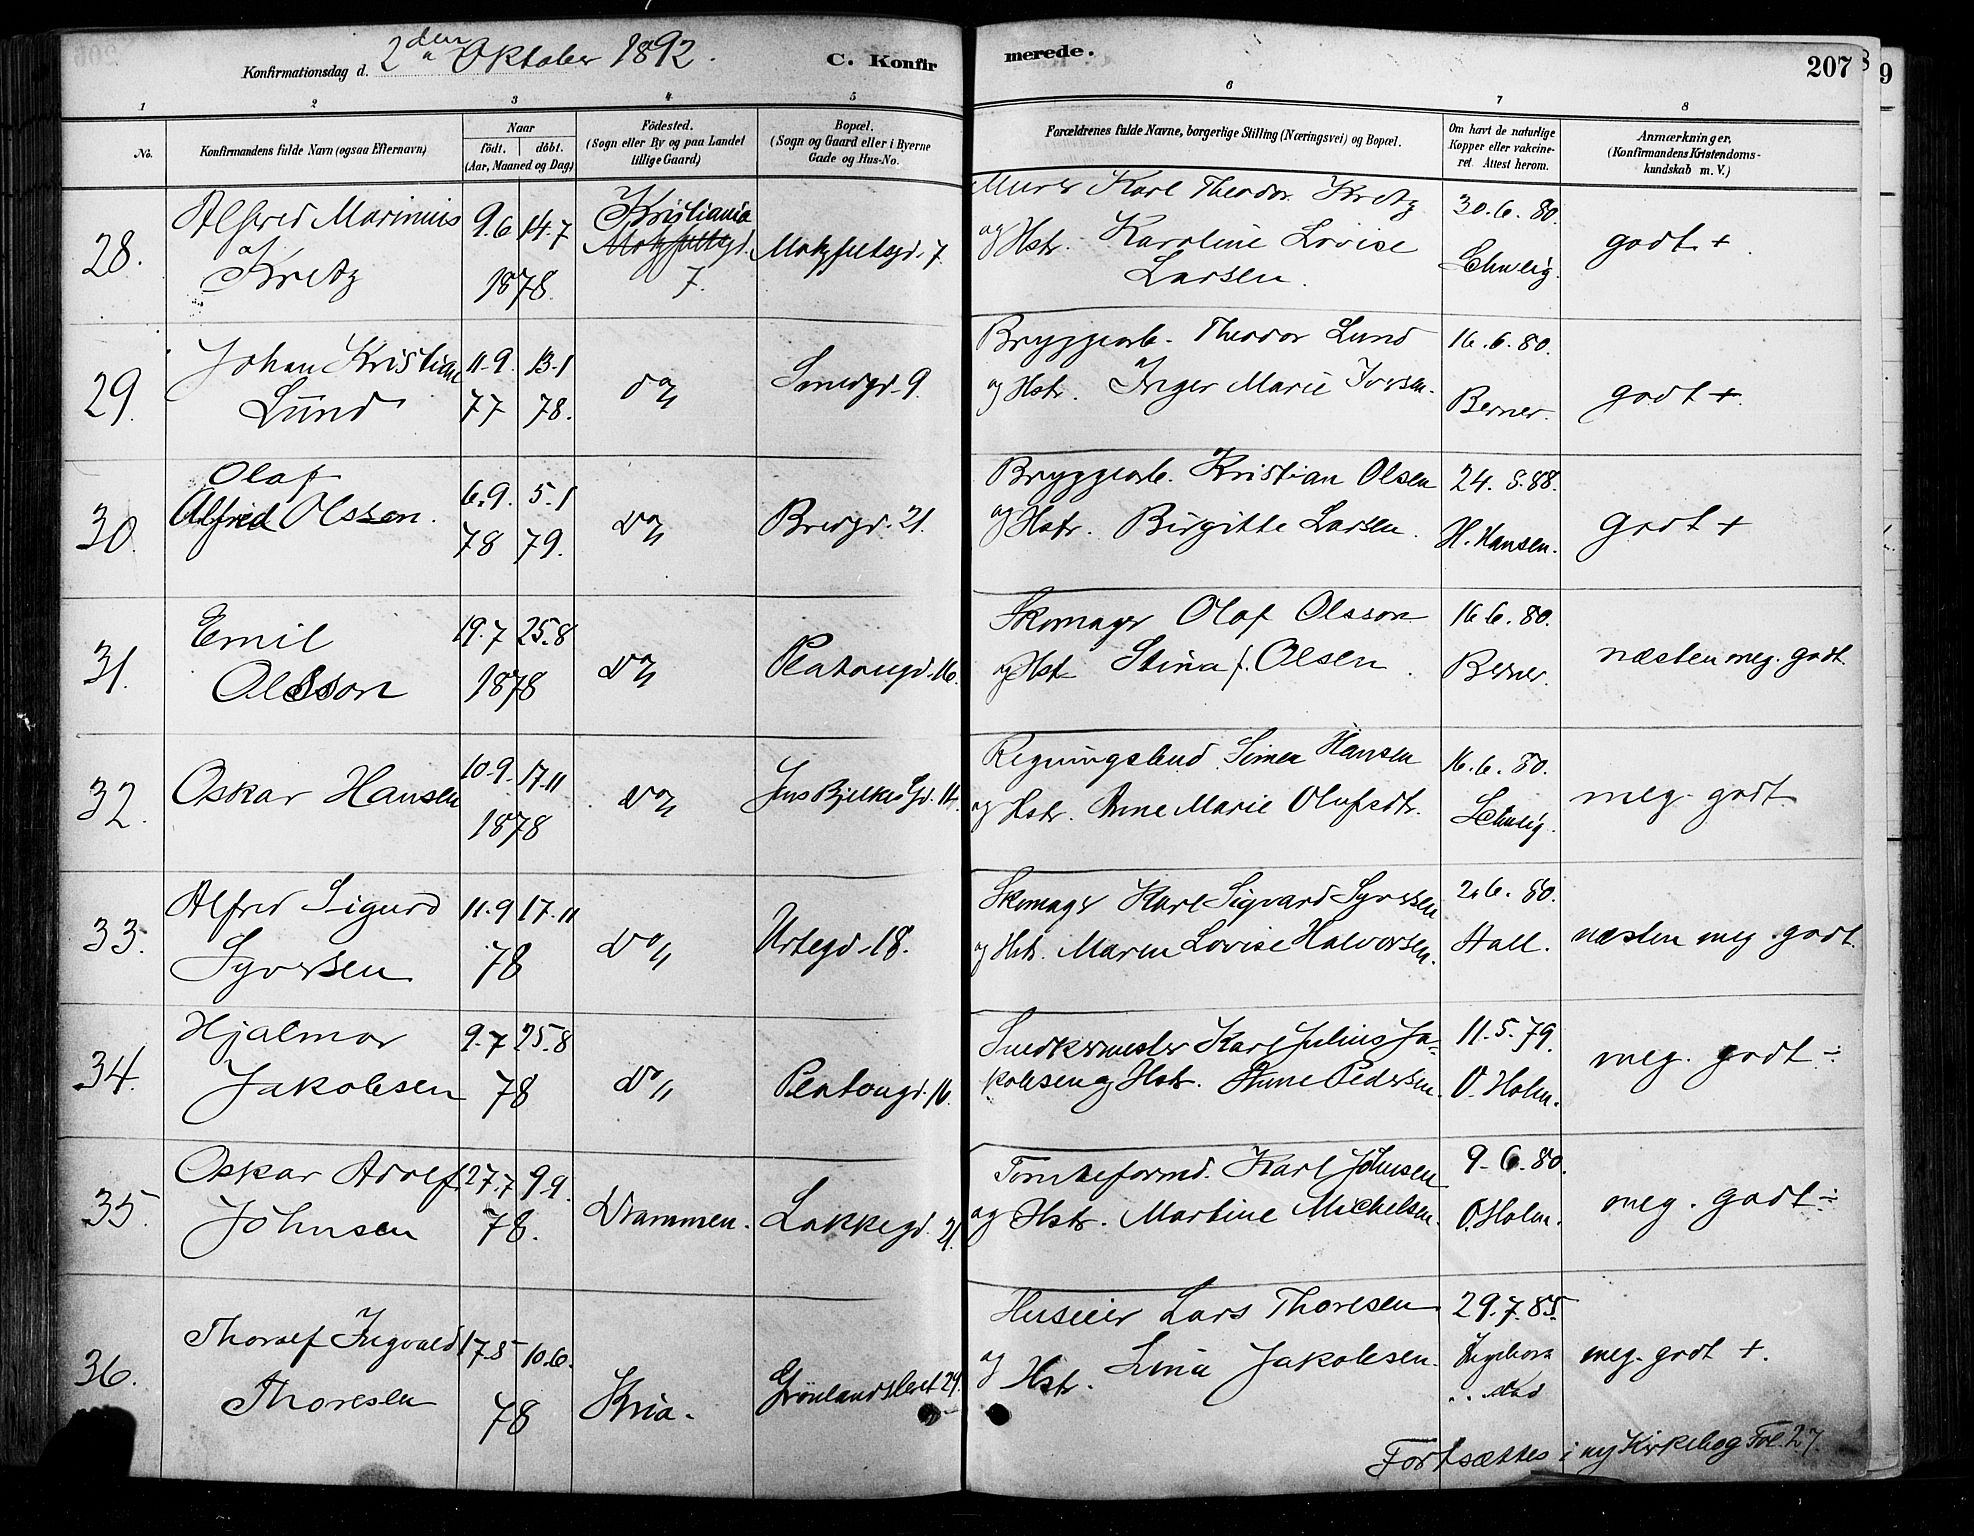 Konfirmationsdag d. 2den Oktober 1892. C. Konfirmerede. 207
1 2 3 4 5 6 7 8
No.
Konfirmandens fulde Navn (ogsaa Efternavn)
Naar
födt. döbt.
(Aar, Maaned og Dag)
Födested.
(Sogn eller By og paa Landet
tillige Gaard)
Bopæl.
(Sogn og Gaard eller i Byerne
Gade og Hus-No.
Forældrenes fulde Navne, borgerlige Stilling (Næringsvei) og Bopæl.
Om havt de naturlige
Kopper eller vakcine-
ret. Attest herom.
Anmærkninger,
(Konfirmandens Kristendoms-
kundskab m. V.)
28. Alfred Marinius
Kretz
9.6 14.7
1878.
Kristiania
7.
Motzfeltsgd. 7
Murer Karl Theodor Kretz
og Hstr. Karoline Lovise
Larsen.
30.6.80.
Schweig.
godt +
29. Johan Kristian
Lund
11.9. 13.1
77 78.
do
Smedgd. 9.
Bryggearb. Theodor Lund
og Hstr. Inger Marie Iversen.
16.6.80.
Berner.
godt +
30. Olaf
Alfred Olssen.
6.9. 5.1
78 79.
do
Bredgd. 21.
Bryggearb. Kristian Olsen
og Hstr. Birgitte Larsen.
24.8.88.
H. Hansen.
godt +
31. Emil
Olsson
19.7 25.8
1878
do
Platougd. 16.
Skomager Olaf Olsson
og Hst Stina f. Olsen.
16.6.80.
Berner.
næsten meg. godt
32. Oskar Hansen
10.9. 17.11
1878
do
Jens Bjelkes Gd. 14.
Regningsbud Simen Hansen
og Hstr. Anne Marie Olufsdtr.
16.6.80.
Schweig.
meg. godt
33. Alfred Sigurd
Syversen
11.9 17.11
78
do
Urtegd. 18.
Skomager Karl Sigvard Syversen
og Hstr. Maren Lovise Halvorsen.
2.6.80.
Hall.
næsten meg godt
34. Hjalmar
Jakobsen
9.7 25.8
78
do
Platougd. 16.
Snedkermester Karl Julius Ja-
kobsen og Hstr. Anne Pedersen.
11.5.79.
O. Holm.
meg. godt ÷
35. Oskar Adolf
Johnsen
27.7 9.9.
78.
Drammen.
Lakkegd. 21.
Tomteformd. Karl Johnsen
og Hstr. Martine Michelsen.
9.6.80.
O. Holm.
meg. godt ÷
36. Thoralf Ingvald
Thoresen
17.5 10.6.
78
Kria.
Grönlandsleret 29.
Huseier Lars Thoresen
og Hstr. Lina Jakobsen.
29.7.85.
meg. godt +.
Fortsættes i ny Kirkebog Fol. 27.